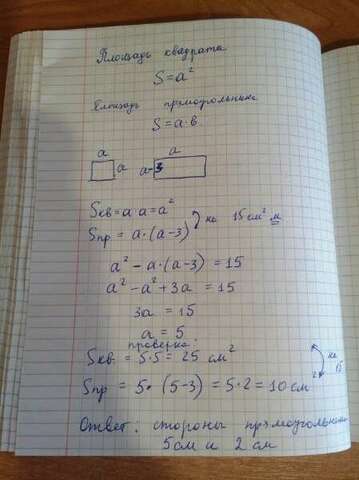 Площадь квадрата
S = a²
Площадь прямоугольника
S = a · в
a a
a a-3
Sкв = a · a = a² на 15 см² м
Sпр = a · (a-3)
a² - a · (a-3) = 15
a² - a² + 3a = 15
3a = 15
a = 5
проверка:
Sкв = 5 · 5 = 25 см² на
Sпр = 5 · (5-3) = 5 · 2 = 10 см² 15
Ответ: стороны прямоугольника
5 см и 2 см